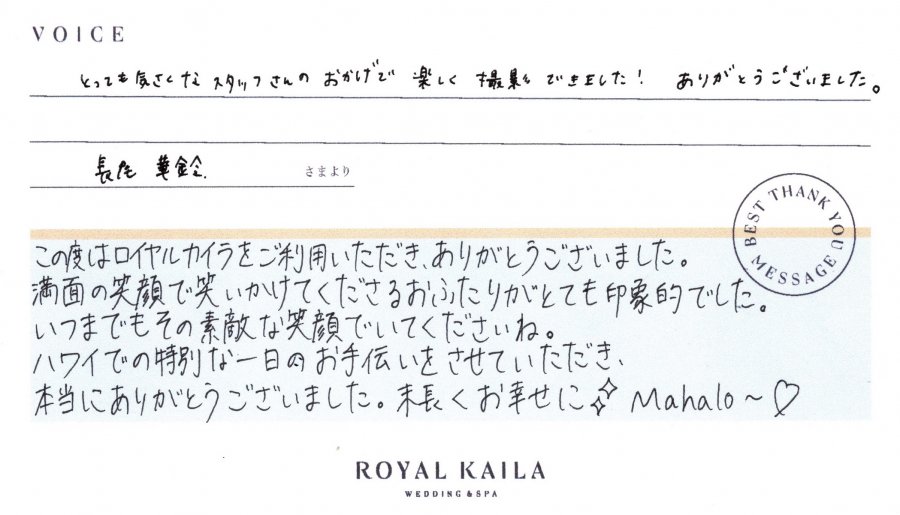 VOICE
とっても気さくな スタッフさんの おかげで 楽しく 撮影 できました! ありがとうございました。
長尾 華鈴 さまより
BEST THANK YOU MESSAGE
この度はロイヤルカイラをご利用いただき、ありがとうございました。
満面の笑顔で笑いかけてくださるおふたりがとても印象的でした。
いつまでもその素敵な笑顔でいてくださいね。
ハワイでの特別な一日のお手伝いをさせていただき、
本当にありがとうございました。末長くお幸せに✨ Mahalo~♡
ROYAL KAILA
WEDDING & SPA